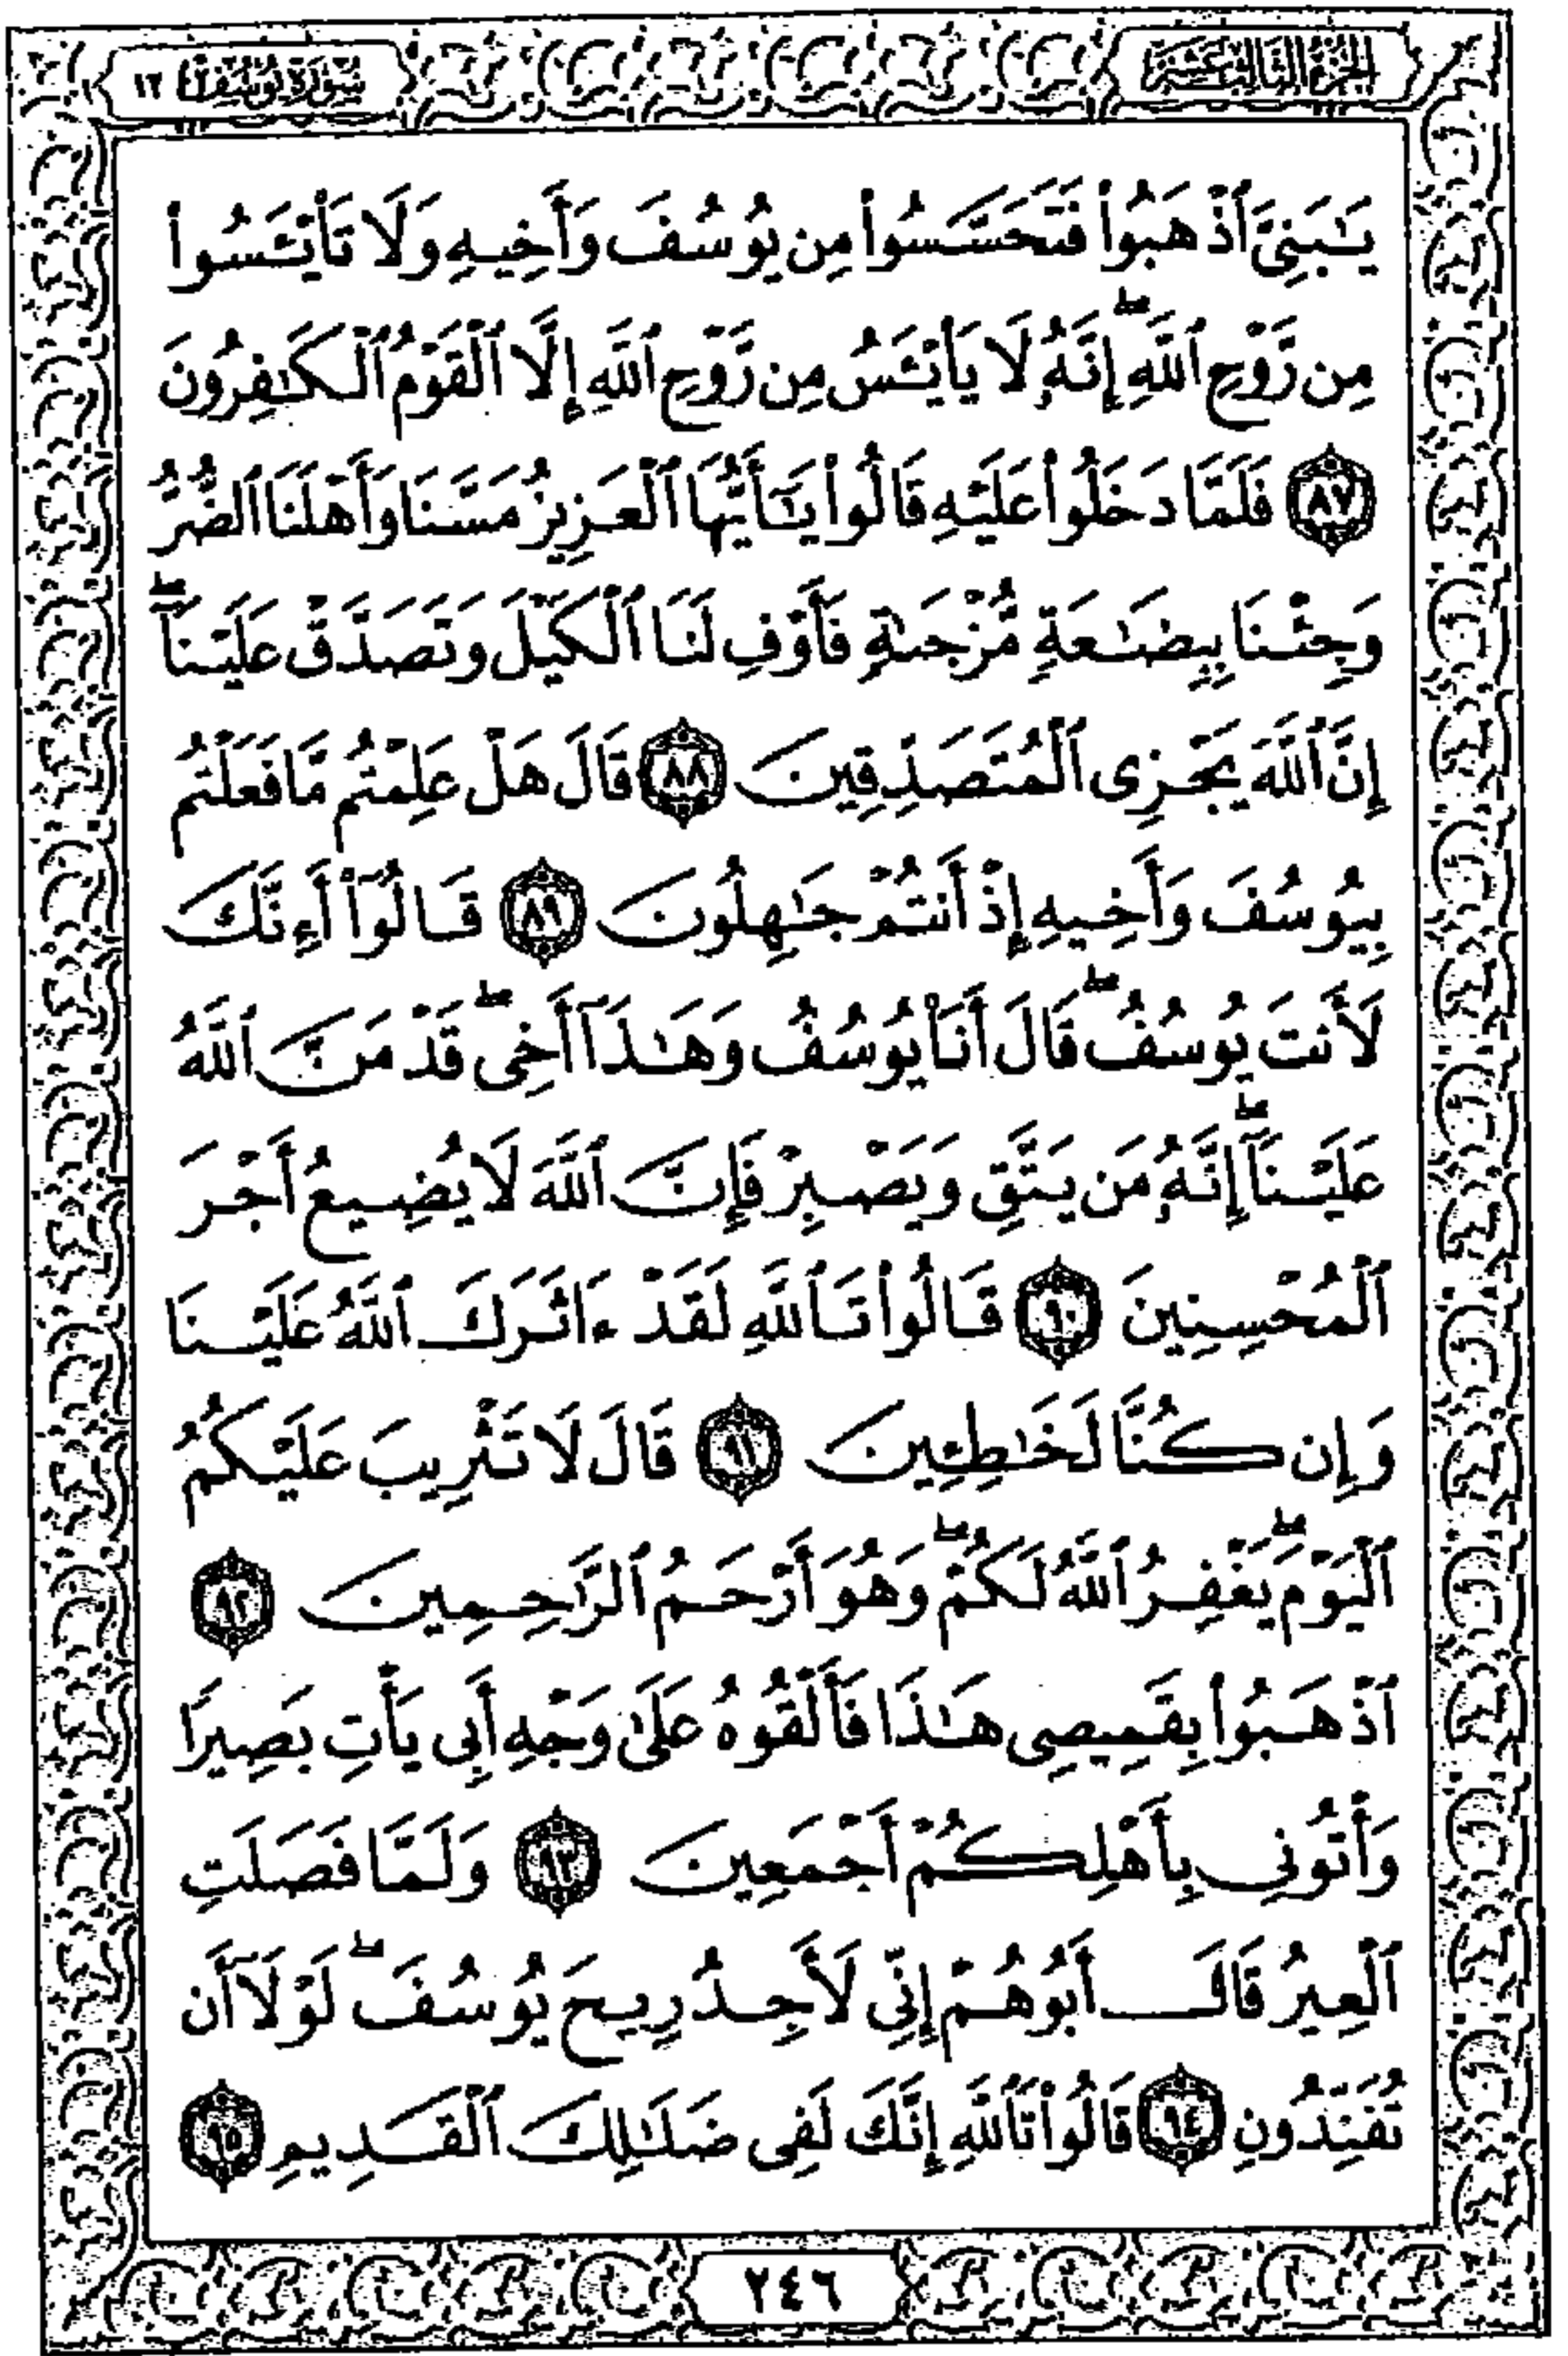 الجزء الثالث عشر
سورة يوسف ١٢
يَـٰبَنِىَّ ٱذْهَبُوا۟ فَتَحَسَّسُوا۟ مِن يُوسُفَ وَأَخِيهِ وَلَا تَا۟يْـَٔسُوا۟
مِن رَّوْحِ ٱللَّهِ ۖ إِنَّهُۥ لَا يَا۟يْـَٔسُ مِن رَّوْحِ ٱللَّهِ إِلَّا ٱلْقَوْمُ ٱلْكَـٰفِرُونَ
٨٧ فَلَمَّا دَخَلُوا۟ عَلَيْهِ قَالُوا۟ يَـٰٓأَيُّهَا ٱلْعَزِيزُ مَسَّنَا وَأَهْلَنَا ٱلضُّرُّ
وَجِئْنَا بِبِضَـٰعَةٍ مُّزْجَىٰةٍ فَأَوْفِ لَنَا ٱلْكَيْلَ وَتَصَدَّقْ عَلَيْنَآ ۖ
إِنَّ ٱللَّهَ يَجْزِى ٱلْمُتَصَدِّقِينَ ٨٨ قَالَ هَلْ عَلِمْتُم مَّا فَعَلْتُم
بِيُوسُفَ وَأَخِيهِ إِذْ أَنتُمْ جَـٰهِلُونَ ٨٩ قَالُوٓا۟ أَءِنَّكَ
لَأَنتَ يُوسُفُ ۖ قَالَ أَنَا۠ يُوسُفُ وَهَـٰذَآ أَخِى ۖ قَدْ مَنَّ ٱللَّهُ
عَلَيْنَآ ۖ إِنَّهُۥ مَن يَتَّقِ وَيَصْبِرْ فَإِنَّ ٱللَّهَ لَا يُضِيعُ أَجْرَ
ٱلْمُحْسِنِينَ ٩٠ قَالُوا۟ تَٱللَّهِ لَقَدْ ءَاثَرَكَ ٱللَّهُ عَلَيْنَا
وَإِن كُنَّا لَخَـٰطِـِٔينَ ٩١ قَالَ لَا تَثْرِيبَ عَلَيْكُمُ
ٱلْيَوْمَ ۖ يَغْفِرُ ٱللَّهُ لَكُمْ ۖ وَهُوَ أَرْحَمُ ٱلرَّٰحِمِينَ ٩٢
ٱذْهَبُوا۟ بِقَمِيصِى هَـٰذَا فَأَلْقُوهُ عَلَىٰ وَجْهِ أَبِى يَأْتِ بَصِيرًا
وَأْتُونِى بِأَهْلِكُمْ أَجْمَعِينَ ٩٣ وَلَمَّا فَصَلَتِ
ٱلْعِيرُ قَالَ أَبُوهُمْ إِنِّى لَأَجِدُ رِيحَ يُوسُفَ ۖ لَوْلَآ أَن
تُفَنِّدُونِ ٩٤ قَالُوا۟ تَٱللَّهِ إِنَّكَ لَفِى ضَلَـٰلِكَ ٱلْقَدِيمِ ٩٥
٢٤٦